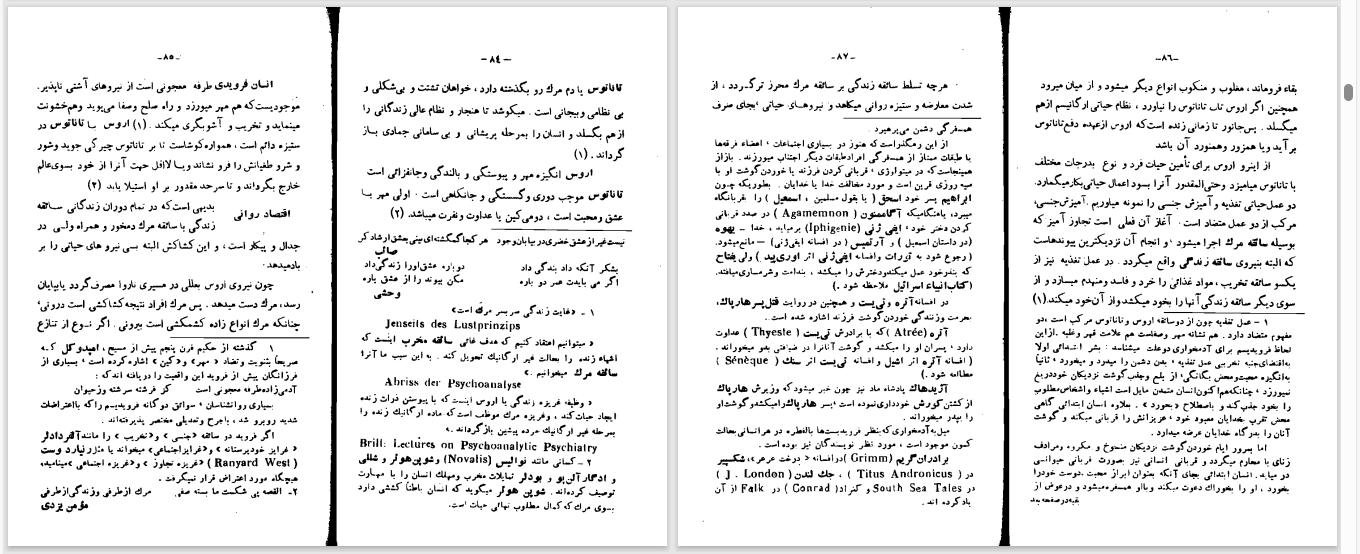 -۸٤-
تاناتوس یا دم مرك رو بگذشته دارد ، خواهان تشتت و بی‌شکلی و
بی نظامی وبیجانی است . میکوشد تا هنجار و نظام عالی زندگانی را
ازهم بگسلد و انسان را بمرحله پریشانی و بی‌سامانی جمادی باز
گرداند . (۱)
اروس انگیزه مهر و پیوستگی و بالندگی وجانفزائی است
تاناتوس موجب دوری وگسستگی و جانکاهی است . اولی مهر یا
عشق ومحبت است ، دومی‌کین یا عداوت و نفرت میباشد. (۲)
نیست‌غیرازعشق‌خضری‌دربیابان‌وجود هرکجاگمگشته‌ای‌بینی‌بعشق‌ارشادکن
صائب
بشکر آنکه داد بندگی داد دوباره عشق‌اورا زندگی‌داد
اگر می بایدت عمر دو باره مکن پیوند را از عشق پاره
وحشی
۱ - «غایت زندگی سربسر مرك است»
Jenseits des Lustprinzips
« میتوانیم اعتقاد کنیم که هدف غائی سائقه مخرب اینست که
اشیاء زنده را بحالت غیر ارگانیك تحویل کند . به این سبب ما آنرا
سائقه مرك میخوانیم . »
Abriss der Psychoanalyse
« وظیفه غریزه زندگی یا اروس اینست که با پیوستن ذرات زنده
ایجاد حیات‌کند ، وغریزه مرك موظف است‌که ماده ارگانیك زنده را
بمرحله غیر ارگانیك مرده پیشین بازگرداند .»
Brill: Lectures on Psychoanalytic Psychiatry
۲ - کسانی مانند نوالیس (Novalis) و شوپن‌هوئر و شالی
و ادگارآلن‌پو و بودلر تمایلات مخرب ومهلك انسان را با مهارت
توصیف کرده‌اند. شوپن هوئر میگوید که انسان باطناً کششی دارد
بسوی مرك که‌کمال مطلوب نهائی حیات است.
-۸۵-
انسان فرویدی طرفه معجونی است از نیروهای آشتی ناپذیر.
موجودیست‌که هم مهر میورزد و راه صلح وصفا می‌پوید وهم‌خشونت
مینماید و تخریب و آشوبگری میکند . (۱) اروس با تاناتوس در
ستیزه دائم است ، همواره‌کوشاست تا بر تاناتوس چیرگی جوید وشور
و شرو طغیانش را فرو نشاند ویا لااقل جهت آنرا از خود بسوی‌عالم
خارج بگرداند و تا سرحد مقدور بر او استیلا یابد (۲)
اقتصاد روانی بدیهی است‌که در تمام دوران زندگانی سائقه
زندگی با سائقه مرك دمخور و همراه ولی در
جدال و پیکار است ، و این کشاکش البته بسی نیرو های حیاتی را بر
بادمیدهد.
چون نیروی اروس بعللی در مسیری ناروا مصرف‌گردد یابپایان
رسد، مرك دست میدهد . پس مرك افراد نتیجه‌کشاکشی است درونی،
چنانکه مرك انواع زاده کشمکشی است بیرونی . اگر نوع از تنازع
۱ گذشته از حکیم قرن پنجم پیش از مسیح ، امپدوکل که
صریحاً بثنویت وتضاد « مهر» و«کین» اشاره‌کرده است ؛ بسیاری از
فرزانگان پیش از فروید این واقعیت را دریافته اند که :
آدمی‌زاده‌طرفه معجونی است کز فرشته سرشته وزحیوان
بسیاری روانشناسان ؛ سوائق دوگانه فرویدیسم راکه بااعتراضات
شدید روبرو شد ، باجرح وتعدیلی مختصر پذیرفته‌اند .
اگر فروید دو سائقه «جنسی » و«تخریب » را مانندآلفردادلر
« غرایز خودپرستانه » و«غرایزاجتماعی» میخواند یا مثل رنیارد وست
(Ranyard West ) «غریزه تجاوز » و«غریزه اجتماعی »مینامید،
هیچگاه مورد اعتراض قرار نمیگرفت .
۲- القصه پی شکست ما بسته صفی مرك ازطرفی وزندگی‌ازطرفی
مؤمن یزدی
-۸٦-
بقاء فروماند، مغلوب و منکوب انواع دیگر میشود و از میان میرود
همچنین اگر اروس تاب تاناتوس را نیاورد ، نظام حیاتی ارگانیسم ازهم
میگسلد . پس‌جانور تا‌زمانی زنده است‌که اروس ازعهده دفع‌تاناتوس
برآید ویا همزور وهمنورد آن باشد
از اینرو اروس برای تأمین حیات فرد و نوع بدرجات مختلف
با تاناتوس میامیزد وحتی‌المقدور آنرا بسود اعمال حیاتی‌بکارمیگمارد.
دو عمل‌حیاتی تغذیه و آمیزش جنسی را نمونه میاوریم .آمیزش‌جنسی،
مرکب از دو عمل متضاد است . آغاز آن فعلی است تجاوز آمیز که
بوسیله سائقه مرك اجرا میشود ؛ و انجام آن نزدیکترین پیوندهاست
که البته بنیروی سائقه زندگی واقع میگردد . در عمل تغذیه نیز از
یکسو سائقه تخریب ، مواد غذائی را خرد و فاسد ومنهدم میسازد و از
سوی دیگر سائقه زندگی آنها را بخود میکشدواز آن‌خود میکند.(۱)
۱ - عمل تغذیه چون از دوسائقه اروس و تاناتوس مرکب است ؛دو
مفهوم متضاد دارد . هم نشانه مهر وصفاست هم علامت قهر وغلبه .ازاین
لحاظ فرویدیسم برای آدمخواری‌دوعلت میشناسد : بشر ابتدائی اولا
به‌اقتضای‌جنبه تخریبی عمل تغذیه ؛ بدن دشمن را میدرد و میخورد ؛ ثانیاً
به‌انگیزه محبت‌ومحض یگانگی، از بلع وجذب‌گوشت نزدیکان خوددریغ
نمیورزد ؛ چنانکه‌هم‌اکنون‌انسان متمدن مایل است اشیاء واشخاص‌مطلوب
را بخود جذب‌کند و باصطلاح «بخورد» . بعلاوه انسان ابتدائی گاهی
محض تقرب بخدایان معبود خود ؛ عزیزانش را قربانی میکند و گوشت
آنان را بدرگاه خدایان عرضه میدارد .
اما بمرور ایام خوردن‌گوشت نزدیکان منسوخ و مکروه ومرادف
زنای با محارم میگردد و قربانی انسانی نیز بصورت قربانی حیوانی
در میابد. انسان ابتدائی بجای آنکه بعنوان ابراز محبت ،دوست خودرا
بخورد ، او را بخوراك دعوت میکند وبااو همسفره‌میشود و درعوض از
بقیه‌درصفحه‌بعد
-۸۷-
هرچه تسلط سائقه زندگی بر سائقه مرك محرز ترگردد ، از
شدت معارضه و ستیزه روانی میکاهد و نیروهای حیاتی ؛بجای صرف
همسفرگی دشمن می‌پرهیزد .
از این رهگذراست‌که هنوز در بسیاری اجتماعات ؛ اعضاء فرقه‌ها
یا طبقات ممتاز از همسفرگی افرادطبقات دیگر اجتناب میورزند . بازاز
همینجاست‌که در میتولوژی ؛ قربانی کردن فرزند یا خوردن‌گوشت او با
سیه روزی قرین است و مورد مخالفت خدا یا خدایان . بطوریکه چون
ابراهیم پسر خود اسحق ( یا بقول مسلمین ، اسمعیل ) را بقربانگاه
میبرد، یاهنگامیکه آگاممنون ( Agamemnon ) در صدد قربانی
کردن دختر خود ؛ ایفی ژنی (Iphigenie) برمیاید ، خدا - یهوه
(در داستان اسمعیل ) و آرتمیس (در افسانه ایفی‌ژنی) - مانع‌میشود.
( رجوع شود به تورات وافسانه ایفی‌ژنی اثر اوری‌پید ) ولی یفتاح
که بنذرخود عمل میکندودخترش را میکشد ، بندامت وشرمساری‌میافتد.
(کتاب‌انبیاء اسرائیل ملاحظه شود .)
در افسانه‌آتره وتی‌یست و همچنین در روایت قتل‌پسرهارپاك،
بحرمت وزنندگی خوردن‌گوشت فرزند اشاره شده است .
آتره (Atrée )که با برادرش تی‌یست ( Thyeste ) عداوت
دارد ؛ پسران او را میکشد و گوشت آنانرا در ضیافتی بعمو میخوراند .
( افسانه آتره اثر اشیل وافسانه تی‌یست اثر سنك ( Sénèque )
مطالعه شود .)
آژیدهاك پادشاه ماد نیز چون خبر میشودکه وزیرش هارپاك
از کشتن‌کورش خودداری‌نموده است ؛پسر هارپاك‌رامیکشد وگوشت‌او
را بپدر میخوراند .
میل‌به‌آدمخواری‌که‌بنظر فرویدیست‌ها بالفطره در هرانسانی‌بحالت
کمون موجود است ، مورد نظر نویسندگان نیز بوده است .
برادران‌گریم (Grimm )درافسانه « درخت عرعر»، شکسپیر
در ( Titus Andronicus ) ؛ جك لندن ( J . London )
در South Sea Tales و کنراد( Conrad ) در Falk از آن
یادکرده اند .